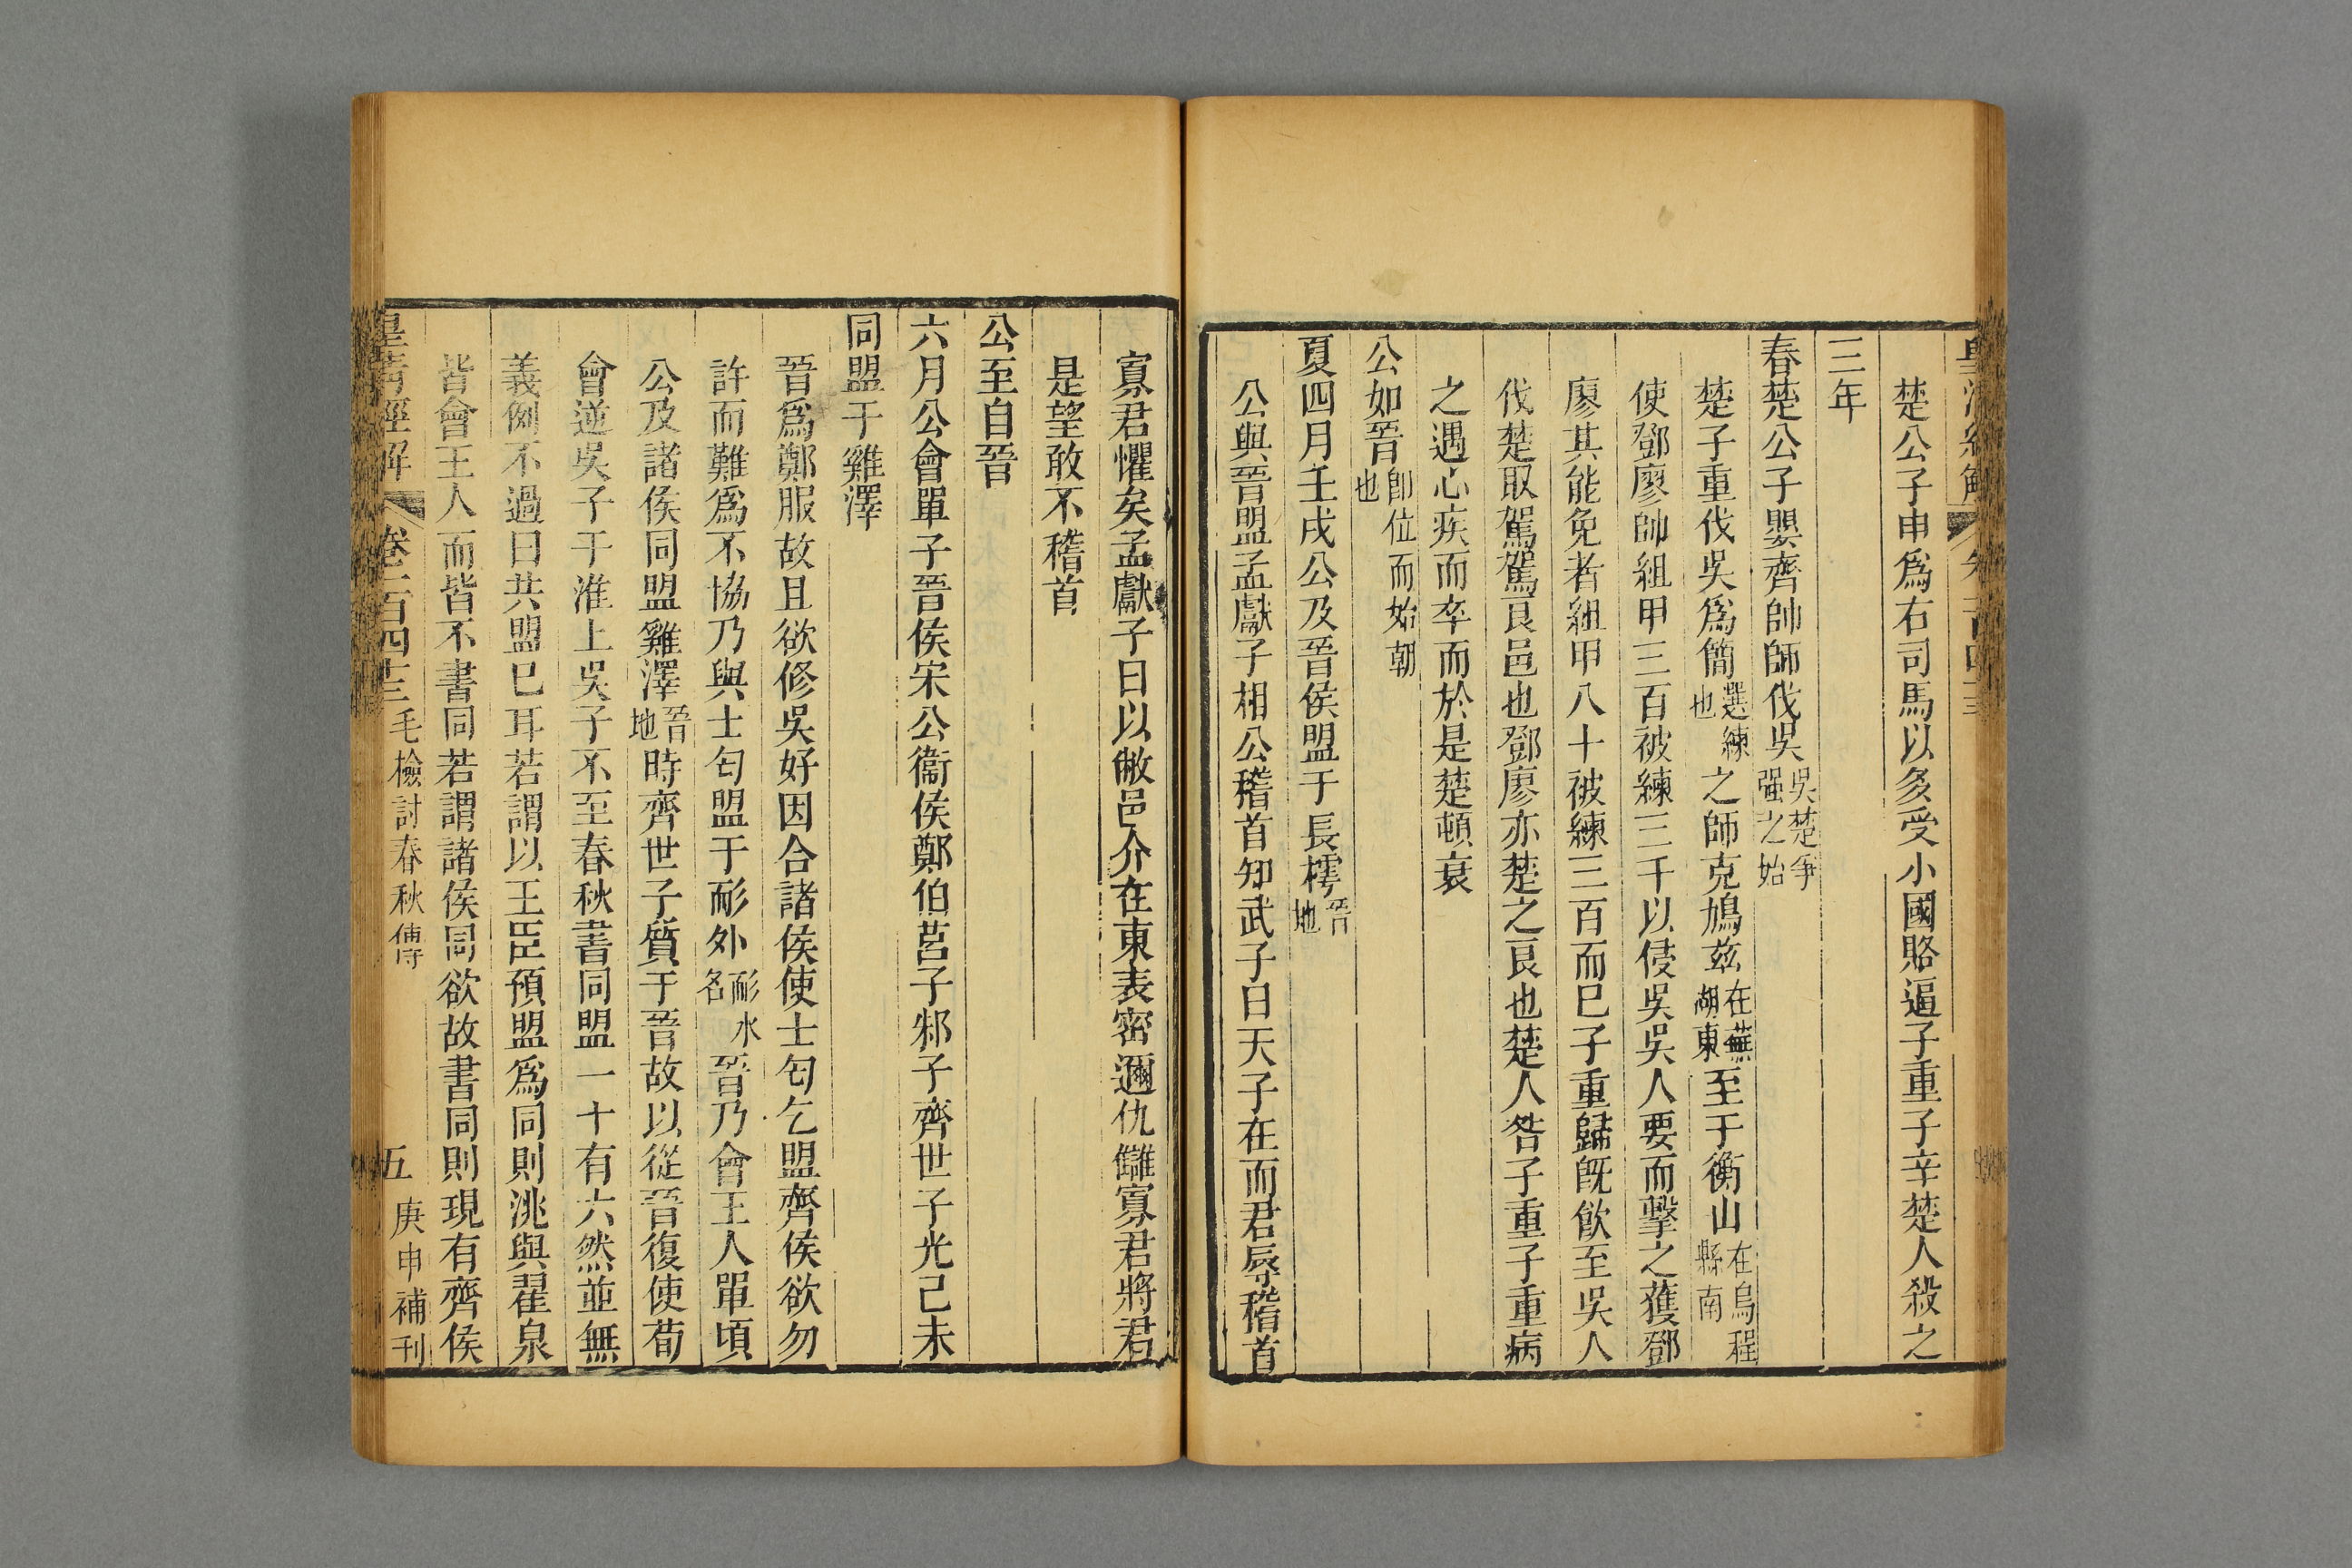 楚公子申爲右司馬以多受小國賂逼子重子辛楚人殺之
三年
春楚公子嬰齊帥師伐吳吳楚爭强之始
楚子重伐吳爲簡選練也之師克鳩茲在蕪湖東至于衡山在烏程縣南
使鄧廖帥組甲三百被練三千以侵吳吳人要而擊之獲鄧
廖其能免者組甲八十被練三百而已子重歸旣飮至吳人
伐楚取駕駕良邑也鄧廖亦楚之良也楚人咎子重子重病
之遇心疾而卒而於是楚頓衰
公如晉卽位而始朝也
夏四月壬戌公及晉侯盟于長樗晉地
公與晉盟孟獻子相公稽首知武子曰天子在而君辱稽首
寡君懼矣孟獻子曰以敝邑介在東表密邇仇讎寡君將君
是望敢不稽首
公至自晉
六月公會單子晉侯宋公衞侯鄭伯莒子邾子齊世子光己未
同盟于雞澤
晉爲鄭服故且欲修吳好因合諸侯使士匄乞盟齊齊侯欲勿
許而難爲不協乃與士匄盟于耏外耏水名晉乃會王人單頃
公及諸侯同盟雞澤晉地時齊世子質于晉故以從晉復使荀
會逆吳子于淮上吳子不至春秋書同盟一十有六然並無
義例不過曰共盟已耳若謂以王臣預盟爲同則洮與翟泉
皆會王人而皆不書同若謂諸侯同欲故書同則現有齊侯
皇淸經解 卷一百四十三 毛檢討春秋傳 五 庚申補刊